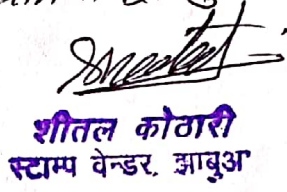 शीतल कोठारी
स्टाम्प वेन्डर, झाबुआ